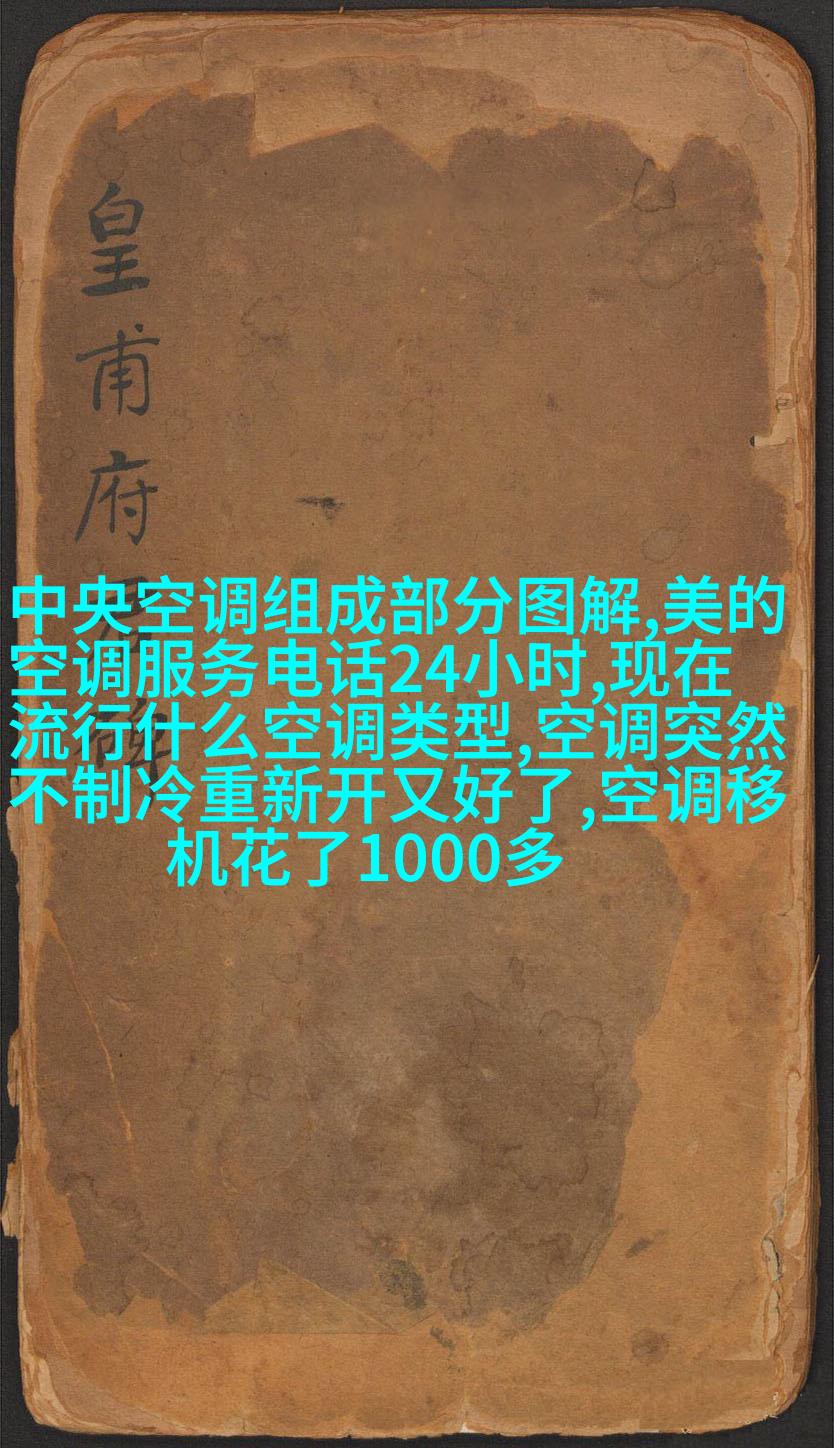 皇甫府君碑
中央空调组成部分图解,美的
空调服务电话24小时,现在
流行什么空调类型,空调突然
不制冷重新开又好了,空调移
机花了1000多